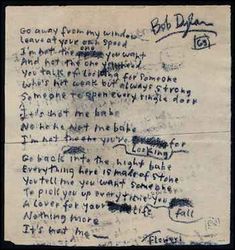 Bob Dylan
63
Go away from my window
Leave at your own speed
I'm not the one you want
And not the one you need
You talk of looking for someone
Who's not weak but always strong
Someone to open every single door
It's not me babe
No no no Not me babe
I'm not the for
Looking
Go back into the night babe
Everything here is made of stone
You tell me you want someone
To pick you up every time you
fall
A lover for your life
Nothing more
It's not me
flowers